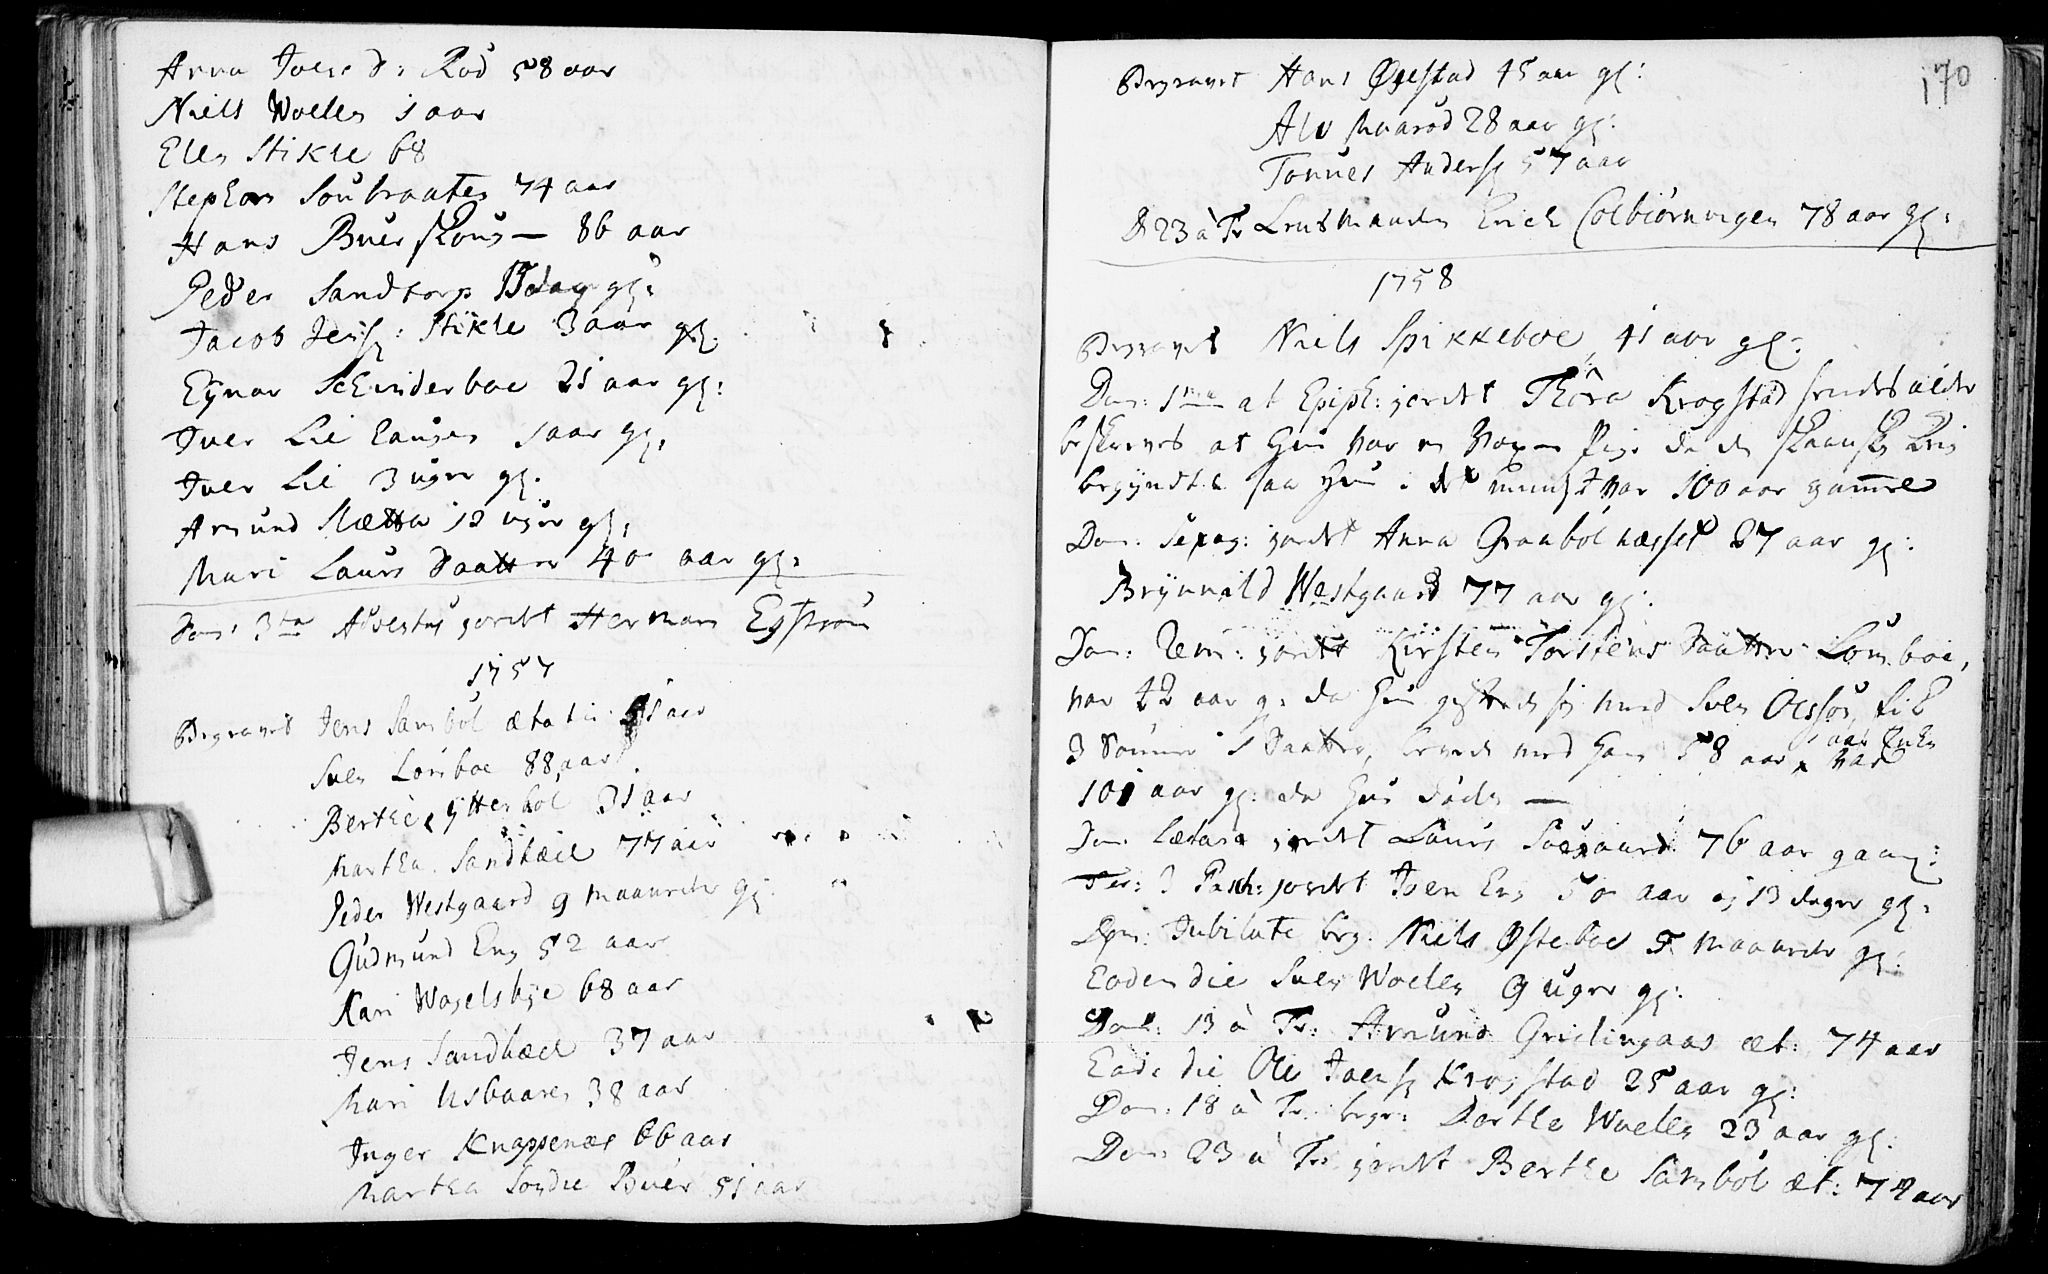 Anna Joens D: Rød 58 aar
Niels Woelen 1 aar
Elen Stikle 68
Stephen Soubraaten 74 aar
Hans Buer skoug — 86 aar
Peder Sandtorp 15 dag gl:
Jacob Jensz: Stikle 3 aar gl.
Eynar Schinderboe 21 aar gl:
Iver Lie Eauger 1 aar gl:
Iver Lie 3 uger gl.
Amund Slætta 12 uger gl:
Mari Laurs Daatter 40 aar gl:
Dom: 3tia Adventus jordet Herman
1757
Begravet Jens Sambøl ætatis 41 aar
Sven Lomboe 88 aar
Berthe Ytterbøl 31 aar
Martha Sandbæck 77 aar
Peder Westgaard 9 maaneder gl:
Gudmund Eng 52 aar
Kari Wogelsbye 68 aar
Jens Sandbæck 37 aar
Mari Usbaaren 38 aar
Inger Knappenæs 66 aar
Martha Søndre Buer 51 aar
170
Begravet Hans Øgestad 45 aar gl:
Alv Maarød 28 aar gl:
Tonnes Andersz 57 aar
D 23 à Tr Lensmanden Erich Colbiørnvigen 78 aar gl:
1758
Begravet Niels Spikkeboe 41 aar gl:
Dom: 1ma at Epiph: jordet Thora Krogstad hendes alder
beskreves at hun var en Voxen Pige da den skaanske Krig
begyndte saa hun i det mindste var 100 aar gammel
Dom: Sexag: jordet Anna Graabøl næsset 27 aar gl:
Brynnild Westgaard 77 aar gl:
Dom: Rem: jordet Kirsten Torstens Daatter Lomboe,
var 22 aar g: da hun giftede sig med Sven Olsson, fik
3 Sønner 1 Daatter, levede med ham 58 aar, var aar Enke
101 aar gl: da hun døde —
Dom Lætare jordet Laurs Soegaard 76 aar gaml:
Fer: 3 Pasch: jordet Joen Eng 50 aar og 13 dager gl:
Dom: Jubilate beg: Niels Østeboe 5 maaneder gl:
Eodem die Sven Woelen 9 uger gl:
Dom: 13 à Tr: Amund Gridlingaas æt: 74 aar
Eode die Ole Joensz Krogstad 25 aar gl:
Dom: 18 à Tr: begr: Dorthe Woelen 23 aar gl:
Dom: 23 à Tr: jordet Berthe Sambøl æt: 72 aar